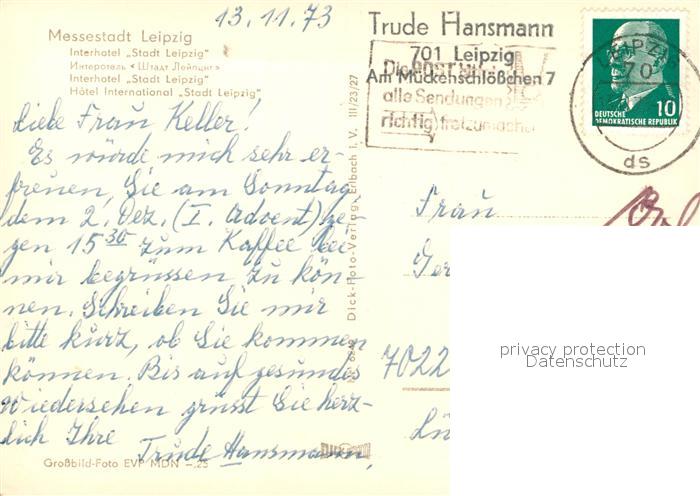 13.11.73
Messestadt Leipzig
Interhotel „Stadt Leipzig"
Интеротель <Штадт Лейпциг>
Interhotel „Stadt Leipzig"
Hôtel International „Stadt Leipzig"
Liebe Frau Keller!
Es würde mich sehr er-
freuen, Sie am Sonntag,
dem 2. Dez. (I. Advent) ge-
gen 15 30 zum Kaffee bei
mir begrüssen zu kön-
nen. Schreiben Sie mir
bitte kurz, ob Sie kommen
können. Bis auf gesundes
Wiedersehen grüsst Sie herz-
lich Ihre
Trude Hansmann,
Großbild-Foto EVP MDN -,25
Dick-Foto-Verlag, Erlbach i. V. III/23/27
Trude Hansmann
701 Leipzig
Am Mückenschlößchen 7
Die Post
alle Sendungen
richtig freizumachen
LEIPZIG
70
ds
10
DEUTSCHE
DEMOKRATISCHE REPUBLIK
Frau
Ger
7022
privacy protection
Datenschutz